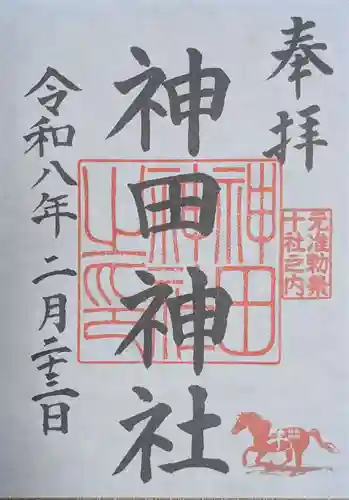 奉拝
元准勅祭
十社之内
神田神社
神田神社之印
令和八年 二月二十三日